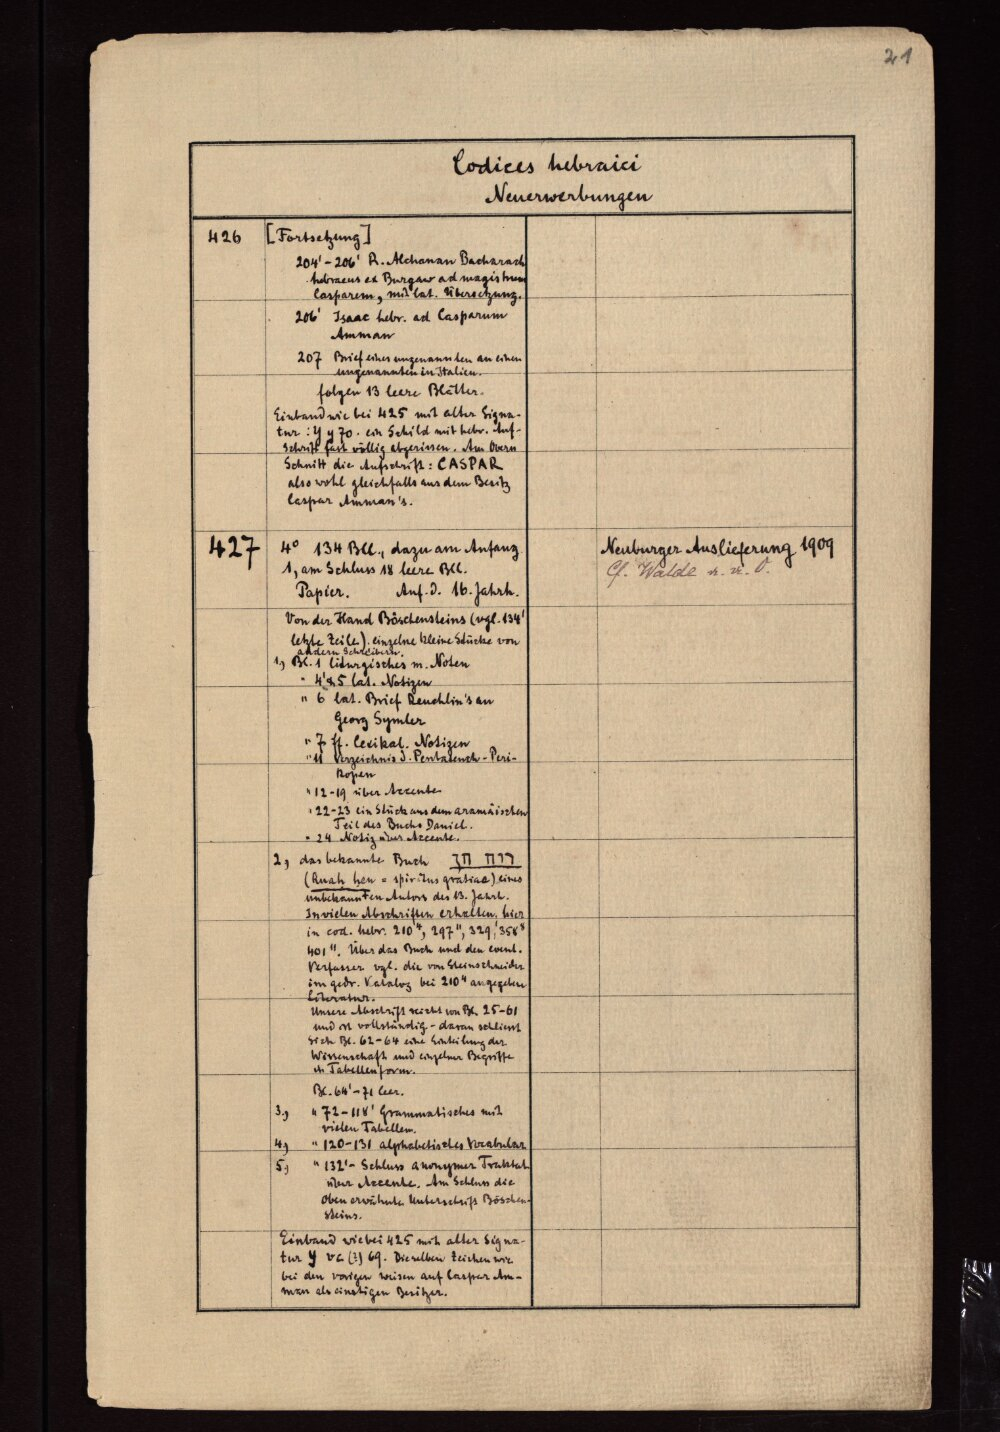 21
Codices hebraici
Neuerwerbungen
426 [Fortsetzung]
204' - 206' R. Alchanan Bacharach
hebraeus ex Burgaw ad magistrum
Casparem, mit lat. Übersetzung.
206' Isaac hebr. ad Casparum
Amman
207 Brief eines ungenannten an einen
ungenannten in Italien.
folgen 13 leere Blätter.
Einband wie bei 425 mit alter Signa-
tur: Y y 70. ein Schild mit hebr. Auf-
schrift fast völlig abgerissen. Am obern
Schnitt die Aufschrift: CASPAR
also wohl gleichfalls aus dem Besitz
Caspar Amman's.
427 4° 134 Bll., dazu am Anfang
1, am Schluss 18 leere Bll.
Papier. Anf. d. 16. Jahrh.
Neuburger Auslieferung 1909
Cf. Walde
Von der Hand Böschensteins (vgl. 134'
letzte Zeile). einzelne kleine Stücke von
andern Schreibern.
1, Bl. 1 liturgisches m. Noten
" 4' & 5 lat. Notizen
" 6 lat. Brief Reuchlin's an
Georg Symler
" 7 ff. lexikal. Notizen
" 11 Verzeichnis d. Pentateuch-Peri-
kopen
" 12-19 über Accente
" 22-23 ein Stück aus dem aramäischen
Teil des Buchs Daniel.
" 24 Notiz über Accente.
2, das bekannte Buch רוח חן
(Ruah hen = spiritus gratiae) eines
unbekannten Autors des 13. Jahrh.
In vielen Abschriften erhalten, hier
in cod. hebr. 210⁴, 297¹¹, 329,¹ 358⁸
401¹¹. Über das Buch und den event.
Verfasser vgl. die von Steinschneider
im gedr. Katalog bei 210⁴ angegebene
Literatur.
Unsere Abschrift reicht von Bl. 25-61
und ist vollständig - daran schliesst
sich Bl. 62-64 eine Einteilung der
Wissenschaft und einzelner Begriffe
in Tabellenform.
Bl. 64' - 71 leer.
3, " 72-118' Grammatisches mit
vielen Tabellen.
4, " 120-131 alphabetisches Vocabular
5, " 132' - Schluss anonymer Traktat
über Accente. Am Schluss die
oben erwähnte Unterschrift Böschen-
steins.
Einband wie bei 425 mit alter Signa-
tur Y va (?) 69. Dieselben Zeichen wie
bei den vorigen weisen auf Caspar Am-
man als einstigen Besitzer.